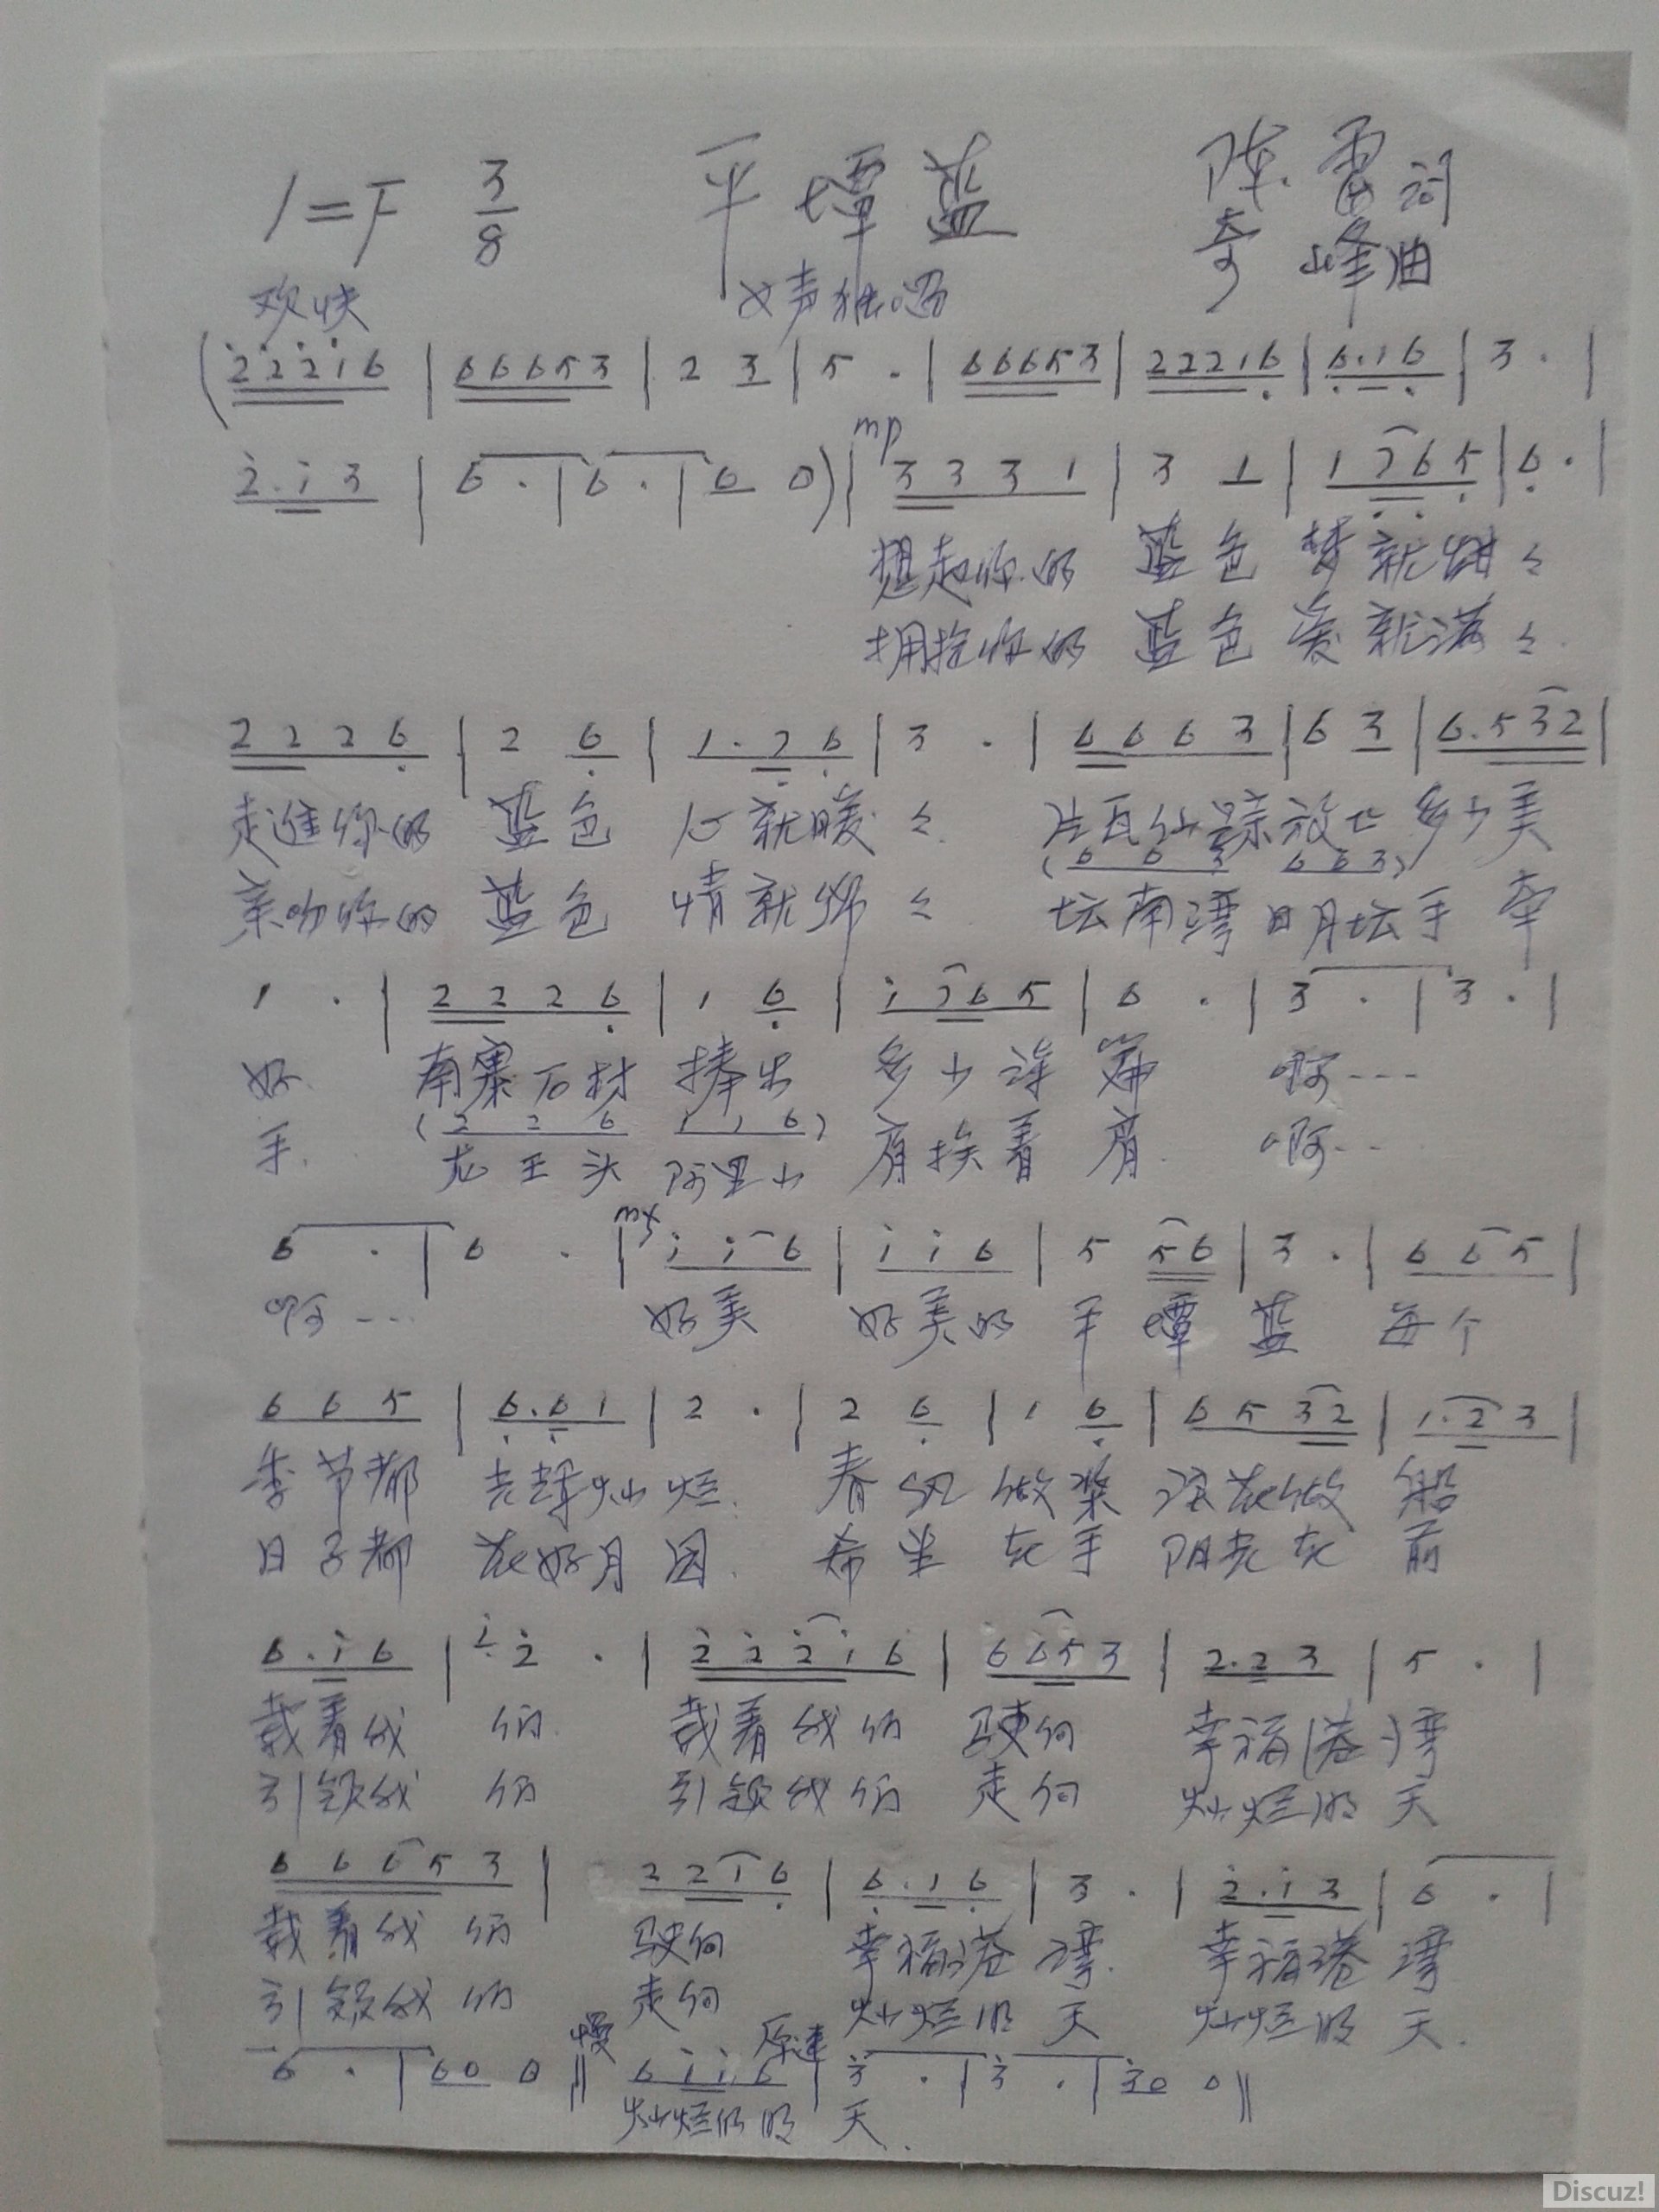 1=F 3/8 平 潭 蓝 陈 雷 词
奇 峰 曲
欢快 女声独唱
(2 2 2 1 6 | 6 6 6 5 3 | 2 3 | 5 . | 6 6 6 5 3 | 2 2 2 1 6 | 6 . 1 6 | 3 . |
mp
2 . 1 3 | 6 . | 6 . | 6 0) | 3 3 3 1 | 3 1 | 1 7 6 5 | 6 . |
想起你的 蓝色 梦就甜々
拥抱你的 蓝色 爱就满々
2 2 2 6 | 2 6 | 1 . 7 6 | 3 . | 6 6 6 3 | 6 3 | 6 . 5 3 2 |
走进你的 蓝色 心就暖々 片瓦仙踪放亡多少美
(6 6 3 6 6 3)
亲吻你的 蓝色 情就绵々 坛南湾 日月坛手牵
1 . | 2 2 2 6 | 1 6 | 1 7 6 5 | 6 . | 3 . | 3 . |
好 南寨石林 捧出 多少诗篇 啊---
(2 2 6 1 1 6)
手 龙王头 阿里山 肩挨着肩 啊---
mf
6 . | 6 . | 1 1 6 | 1 1 6 | 5 5 6 | 3 . | 6 6 5 |
啊--- 好美 好美的 平潭蓝 每个
6 6 5 | 6 . 6 1 | 2 . | 2 6 | 1 6 | 6 5 3 2 | 1 . 2 3 |
季节都 光辉灿烂 春风做桨 浪花做船
日子都 花好月圆 希望在手 阳光在前
6 . 1 6 | 1 2 . | 2 2 2 1 6 | 6 6 5 3 | 2 . 2 3 | 5 . |
载着我们 载着我们 驶向 幸福(港)湾
引领我们 引领我们 走向 灿烂明天
6 6 6 5 3 | 2 2 1 6 | 6 . 1 6 | 3 . | 2 . 1 3 | 6 . |
载着我们 驶向 幸福港湾 幸福港湾
引领我们 走向 灿烂明天 灿烂明天
慢 原速
6 . | 6 0 0 ‖ 6 1 1 6 | 3 . | 3 . | 3 0 0 ‖
灿烂的明天
Discuz!